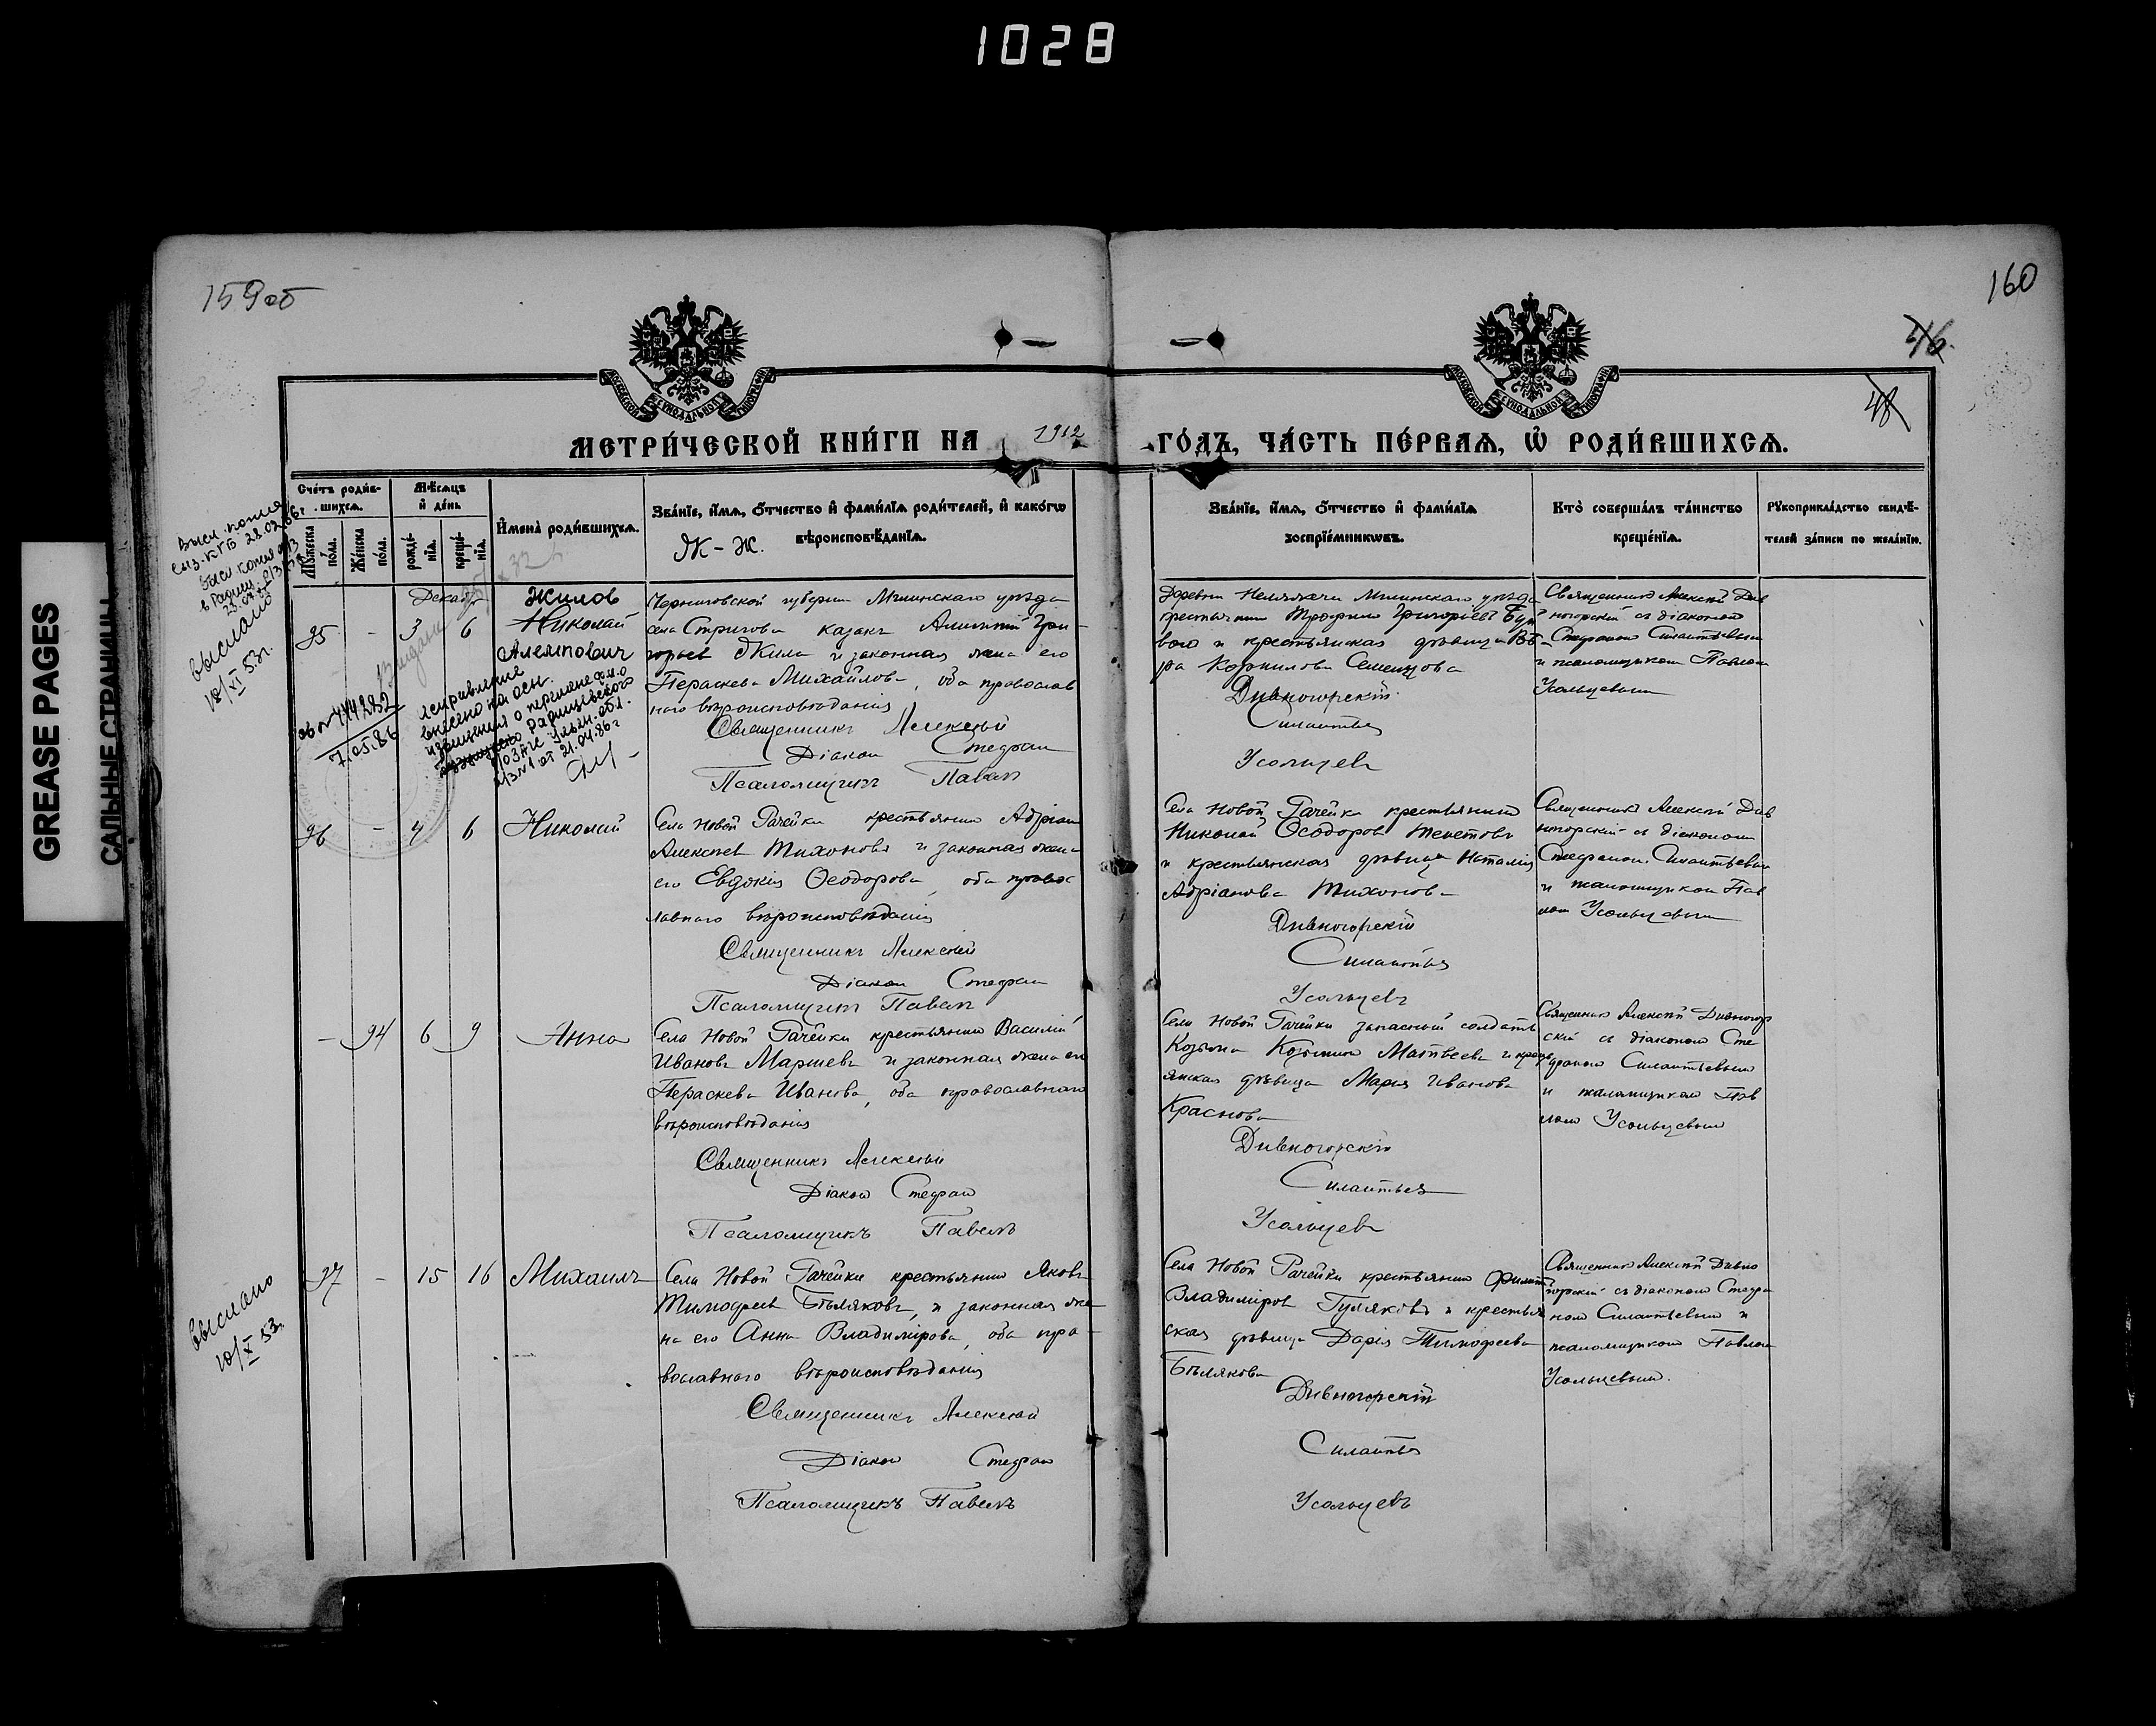 1028
GREASE PAGES
САЛЬНЫЕ СТРАНИЦЫ
159об
160
МЕТРИ́ЧЕСКОЙ КНИ́ГИ НА 1912 ГО́ДЪ, ЧА́СТЬ ПЕ́РВАѦ, Ѡ҆ РОДИ́ВШИХСѦ.
Сче́тъ роди́в-
шихсѧ.
Мꙋ́жеска по́ла.
Же́нска по́ла.
Мѣ́сѧцъ и҆ де́нь
рожде́-нїѧ.
креще́-нїѧ.
И҆мена̀ роди́вшихсѧ.
Зва́нїе, и҆́мѧ, ѻ҆́тчество и҆ фами́лїѧ роди́телей, и҆ како́гѡ
вѣроисповѣ́данїѧ.
Ж-Ж.
Зва́нїе, и҆́мѧ, ѻ҆́тчество и҆ фами́лїѧ
воспрїе́мникѡвъ.
Кто̀ соверша́лъ та́инство
креще́нїѧ.
Рꙋкоприкла́дство свидѣ́-
телей за́писи по жела́нїю.
выслано
18/XI 53г.
Декабрь
95 - 3 6
Жилов
Николай
Алемпович
исправление
внесено на осн.
извещения о перемене ф.и.о
Радищевского
РОЗАГС Ульян. обл.
а/з №1 от 21.04.86г
7.05.86
Черниговской губернии Мглинскаго уѣзда
села Стригова казакъ Алимпій Гри-
горьев Жила и законная жена его
Параскева Михайлова, оба православ
наго вѣроисповѣданія
Священникъ Алексѣй
Діакон Стефан
Псаломщикъ Павел
Мглинскаго уѣзда
крестьянин Трофим Григоріев
и крестьянская дѣвица Вѣ-
ра Корнилова Семенцова
Дивногорскій
Силантьев
Усольцевъ
Священник Алексѣй Див
ногорскій съ діаконом
Стефаном Силантьевым
и псаломщиком Павлом
Усольцевым
96 - 4 6 Николай
Села Новой Рачейки крестьянин Адріан
Алексѣев Тихоновъ и законная жена
его Евдокія Ѳеодорова, оба правос
лавнаго вѣроисповѣданія
Священникъ Алексѣй
Діакон Стефан
Псаломщикъ Павел
Села Новой Рачейки крестьянин
Николай Ѳеодоров
и крестьянская дѣвица Наталія
Адріанова Тихонова
Дивногорскій
Силантьев
Усольцевъ
Священник Алексѣй Див
ногорскій съ діаконом
Стефаном Силантьевым
и псаломщиком Пав
лом Усольцевым
- 94 6 9 Анна
Села Новой Рачейки крестьянин Василій
Иванов Маршев и законная жена его
Параскева Иванова, оба православнаго
вѣроисповѣданія
Священникъ Алексѣй
Діакон Стефан
Псаломщикъ Павелъ
Села Новой Рачейки запасный солдатъ
Козьма Козьмин Матвеев и кресть
янская дѣвица Марія Иванова
Краснова
Дивногорскій
Силантьев
Усольцевъ
Священник Алексѣй Дивногор
скій съ діаконом Сте
фаном Силантьевым
и псаломщиком Пав
лом Усольцевым
выслано
10/X 53г.
97 - 15 16 Михаилъ
Села Новой Рачейки крестьянин Яковъ
Тимофеев Бѣляковъ, и законная же
на его Анна Владимірова, оба пра-
вославнаго вѣроисповѣданія
Священникъ Алексѣй
Діакон Стефан
Псаломщикъ Павелъ
Села Новой Рачейки крестьянин Филипп
Владиміров Гуляковъ и крестьян
ская дѣвица Дарія Тимофеева
Бѣлякова
Дивногорскій
Силантьев
Усольцевъ
Священник Алексѣй Дивно
горскій съ діаконом Стефа
ном Силантьевым и
псаломщиком Павлом
Усольцевым.